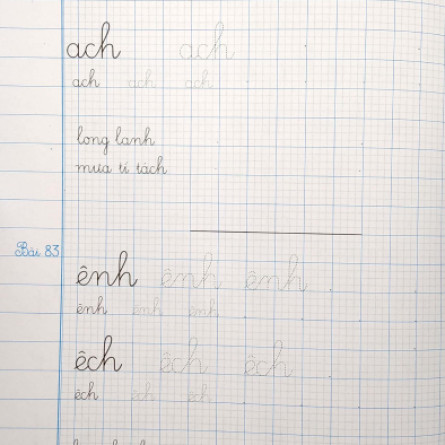 ach ach
ach ach ach
long lanh
mưa tí tách
Bài 83
ênh ênh ênh
ênh ênh ênh
êch êch êch
êch êch êch